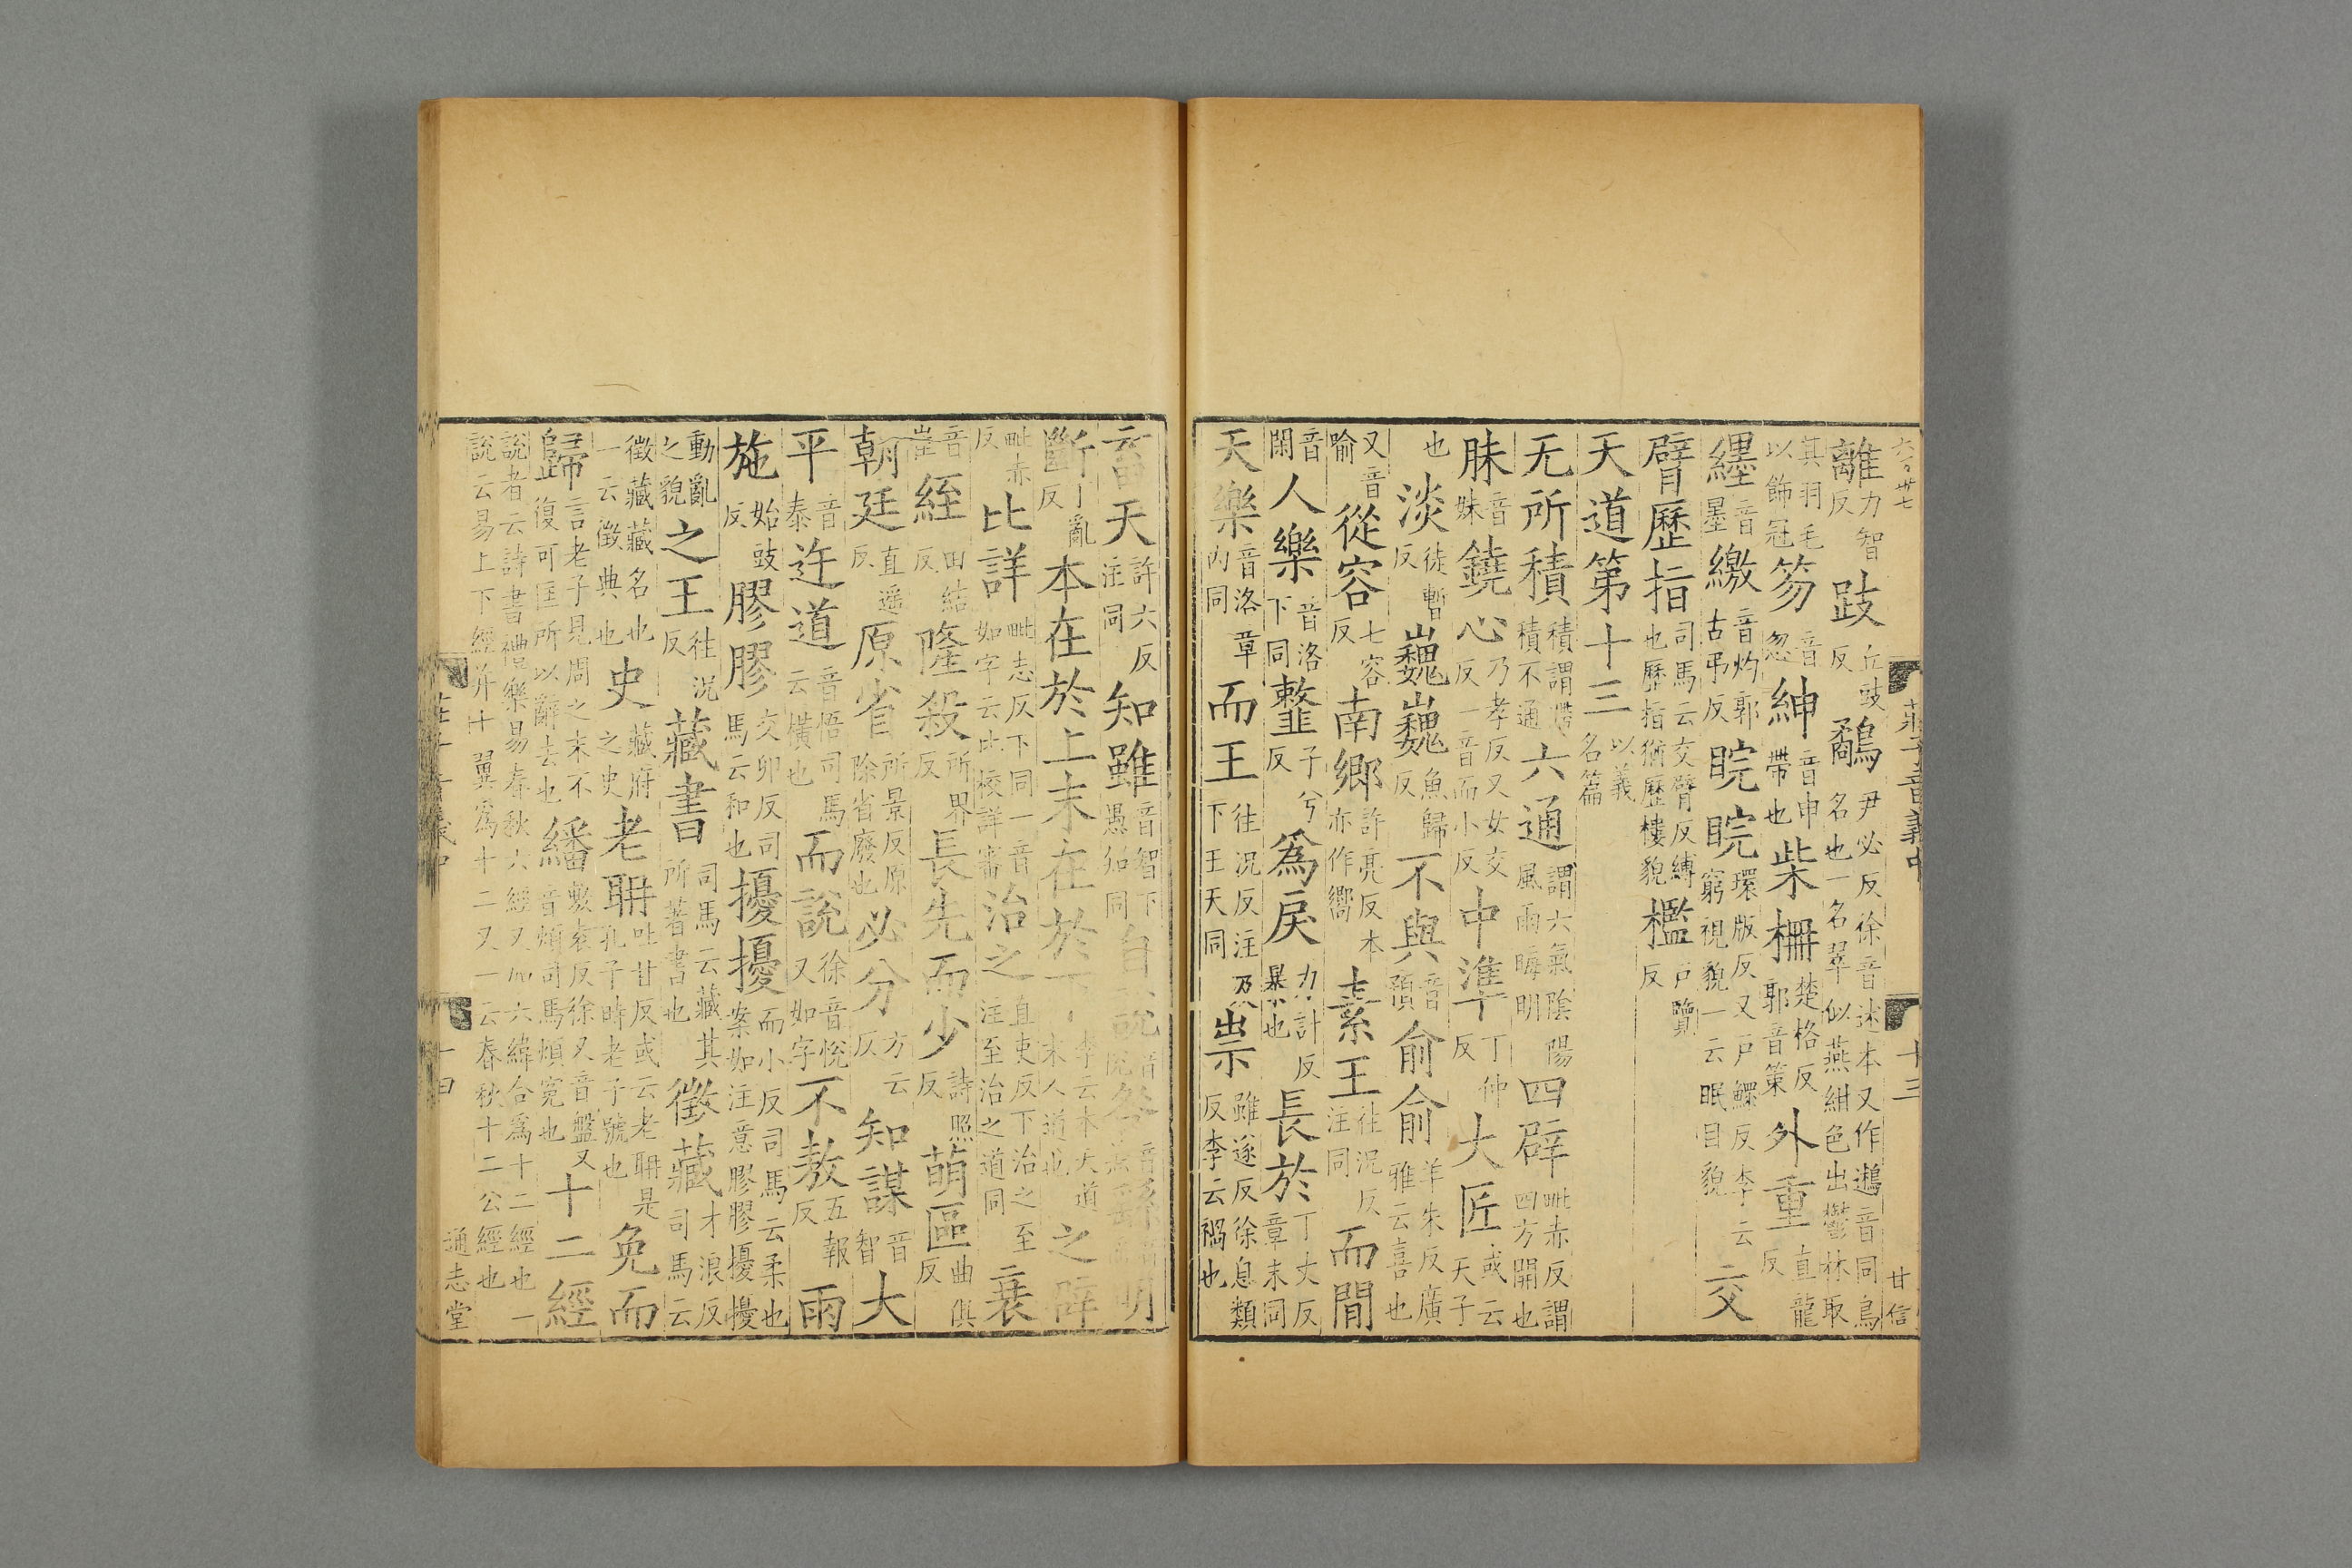 六〻卅七
莊子音義中
十三
甘信
離力智反跂丘豉反鷸尹必反徐音述本又作鷸音同鳥名也一名翠似燕紺色出鬱林取
其羽毛以飾冠笏音忽紳音申帶也柴柵楚格反郭音策外重直龍反
纆音墨繳音灼郭古弔反睆睆環版反又戸鰥反李云窮視貌一云眠目貌交
臂歷指司馬云交臂反縛也歷指猶歷樓貌檻戸覽反
天道第十三以義名篇
无所積積謂滯積不通六通謂六氣陰陽風雨晦明四辟毗赤反謂四方開也
昧音妹鐃心乃孝反又女交反一音而小反中準丁仲反大匠或云天子
也淡徒暫反巍巍魚歸反不與音預俞俞羊朱反廣雅云喜也
又音喻從容七容反南鄉許亮反本亦作嚮素王往況反注同而閒
音閑人樂音洛下同䪡子兮反爲戾力計反暴也長於丁丈反章末同
天樂音洛章內同而王往況反注及下王天同祟雖遂反徐息類反李云禍也
畜天許六反注同知雖音智下愚知同自說音悅
斷丁亂反本在於上末在於下李云本天道末人道也之辟
毗赤反比詳毗志反下同一音如字云比校詳審治之直吏反下治之至注至治之道同衰
音崔絰田結反隆殺所界反長先而少詩照反萌區曲俱反
朝廷直遥反原省所景反原除省廢也必分方云反知謀音智大
平音泰迕道音悟司馬云橫也而說徐音悅又如字不敖五報反雨
施始豉反膠膠交卯反司馬云和也擾擾而小反司馬云柔也案如注意膠膠擾擾
動亂之貌之王往況反藏書司馬云藏其所著書也徵藏才浪反司馬云
徵藏藏名也一云徵典也史藏府之史老聃吐甘反或云老聃是孔子時老子號也免而
歸言老子見周之末不復可匡所以辭去也繙敷袁反徐又音盤又音煩司馬煩冤也十二經
說者云詩書禮樂易春秋六經又加六緯合爲十二經也一說云易上下經并十翼爲十二又一云春秋十二公經也
十四
通志堂